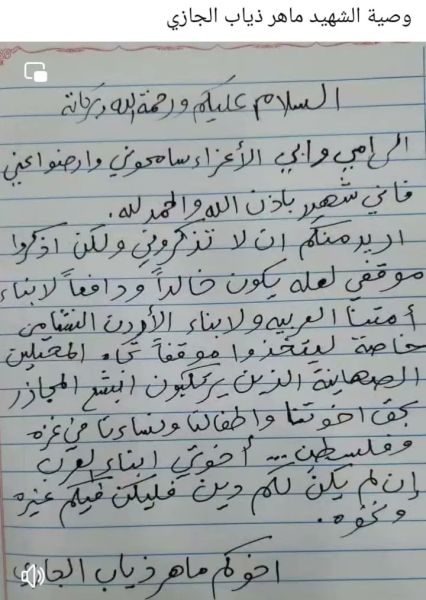 وصية الشهيد ماهر ذياب الجازي
السلام عليكم ورحمة الله وبركاته
الى امي وابي الأعزاء سامحوني وارضوا عني
فاني شهيد باذن الله والحمد لله.
اريد منكم ان لا تذكروني ولكن اذكروا
موقفي لعله يكون خالداً ودافعاً لابناء
أمتنا العربيه ولابناء الأردن النشامى
خاصة ليتخذوا موقفاً تجاه المحتلين
الصهاينة الذين يرتكبون ابشع المجازر
بحق اخوتنا واطفالنا ونساءنا في غزه
وفلسطين... أخوتي ابناء العرب
إن لم يكن لكم دين فليكن فيكم غيره
ونخوه.
اخوكم ماهر ذياب الجازي